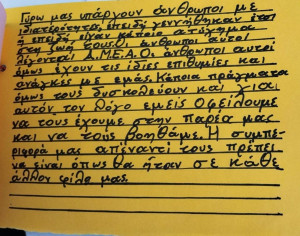 Γύρω μας υπάρχουν άνθρωποι με
ιδιαιτερότητα, επειδή γεννήθηκαν έτσι
ή επειδή είχαν κάποιο ατύχημα
στη ζωή τους. Οι άνθρωποι αυτοί
λέγονται Α.Μ.Ε.Α. Οι άνθρωποι αυτοί
όμως έχουν τις ίδιες επιθυμίες και
ανάγκες με εμάς. Κάποια πράγματα
όμως τους δυσκολεύουν και για
αυτόν τον λόγο εμείς οφείλουμε
να τους έχουμε στην παρέα μας
και να τους βοηθάμε. Η συμπε-
ριφορά μας απέναντί τους πρέπει
να είναι όπως θα ήταν σε κάθε
άλλον φίλο μας.